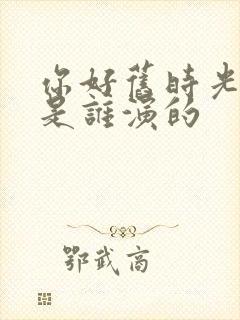 你好舊時光
是誰演的
鄂武商